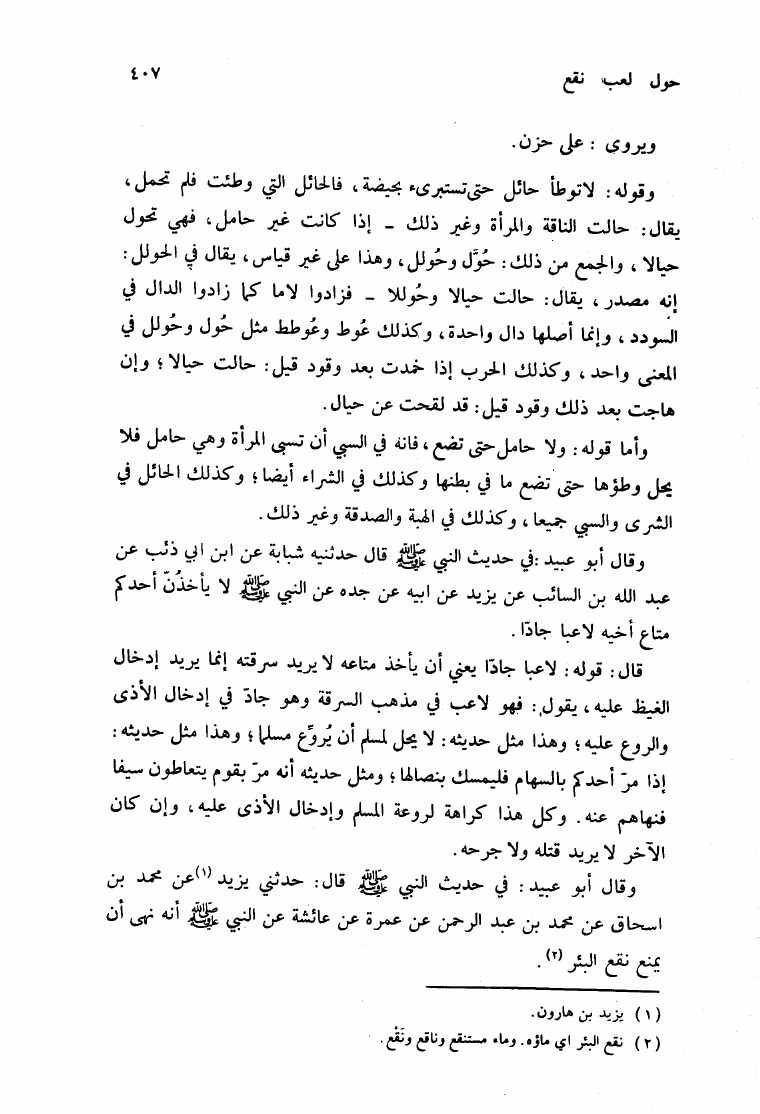 حول لعب نقع ٤٠٧
ويروى : على حزن.
وقوله: لاتوطأ حائل حتى تستبرىء بحيضة، فالحائل التي وطئت فلم تحمل،
يقال: حالت الناقة والمرأة وغير ذلك - إذا كانت غير حامل، فهي تحول
حيالا ، والجمع من ذلك: حُوَّل وحُولل، وهذا على غير قياس، يقال في الحولل:
إنه مصدر ، يقال: حالت حيالا وحُوللا - فزادوا لاما كما زادوا الدال في
السودد ، وإنما أصلها دال واحدة، وكذلك عُوط وعُوطط مثل حُول وحُولل في
المعنى واحد ، وكذلك الحرب إذا خمدت بعد وقود قيل: حالت حيالا؛ وإن
هاجت بعد ذلك وقود قيل: قد لقحت عن حيال.
وأما قوله: ولا حامل حتى تضع، فانه في السبي أن تسبى المرأة وهي حامل فلا
يحل وطؤها حتى تضع ما في بطنها وكذلك في الشراء أيضا؛ وكذلك الحائل في
الشرى والسبي جميعا، وكذلك في الهبة والصدقة وغير ذلك.
وقال أبو عبيد :في حديث النبي ﷺ قال حدثنيه شبابة عن ابن ابي ذئب عن
عبد الله بن السائب عن يزيد عن ابيه عن جده عن النبي ﷺ لا يأخذُنّ أحدكم
متاع أخيه لاعبا جادّا .
قال: قوله: لاعبا جادّا يعني أن يأخذ متاعه لا يريد سرقته إنما يريد إدخال
الغيظ عليه، يقول: فهو لاعب في مذهب السرقة وهو جادّ في إدخال الأذى
والروع عليه؛ وهذا مثل حديثه: لا يحل لمسلم أن يُروِّع مسلما؛ وهذا مثل حديثه:
إذا مرّ أحدكم بالسهام فليمسك بنصالها؛ ومثل حديثه أنه مرّ بقوم يتعاطون سيفا
فنهاهم عنه. وكل هذا كراهة لروعة المسلم وإدخال الأذى عليه، وإن كان
الآخر لا يريد قتله ولا جرحه.
وقال أبو عبيد: في حديث النبي ﷺ قال: حدثني يزيد (١) عن محمد بن
اسحاق عن محمد بن عبد الرحمن عن عمرة عن عائشة عن النبي ﷺ أنه نهى أن
يمنع نقع البئر (٢).
(١) يزيد بن هارون.
(٢) نقع البئر اي ماؤه. وماء مستنقع وناقع ونَقْع.